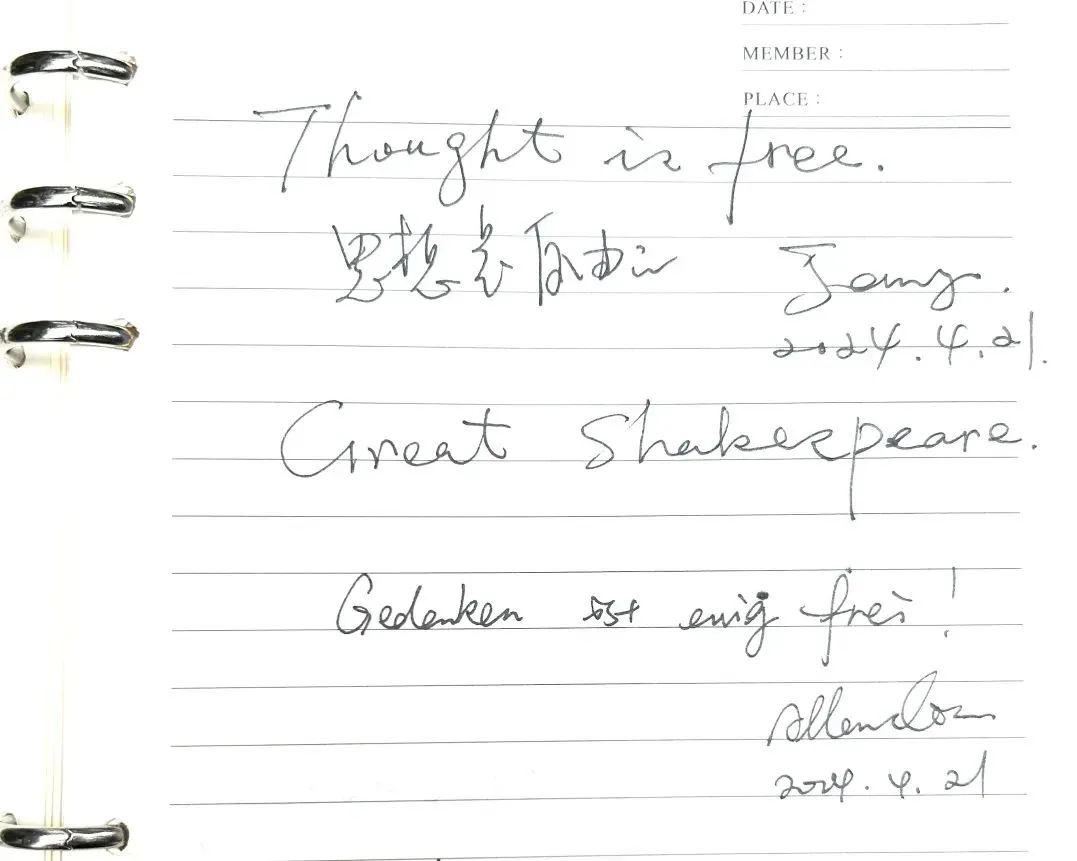 DATE :
MEMBER :
PLACE :
Thought is free.
思想是自由的
2024.4.21.
Great Shakespeare.
Gedenken ist ewig frei!
2024.4.21